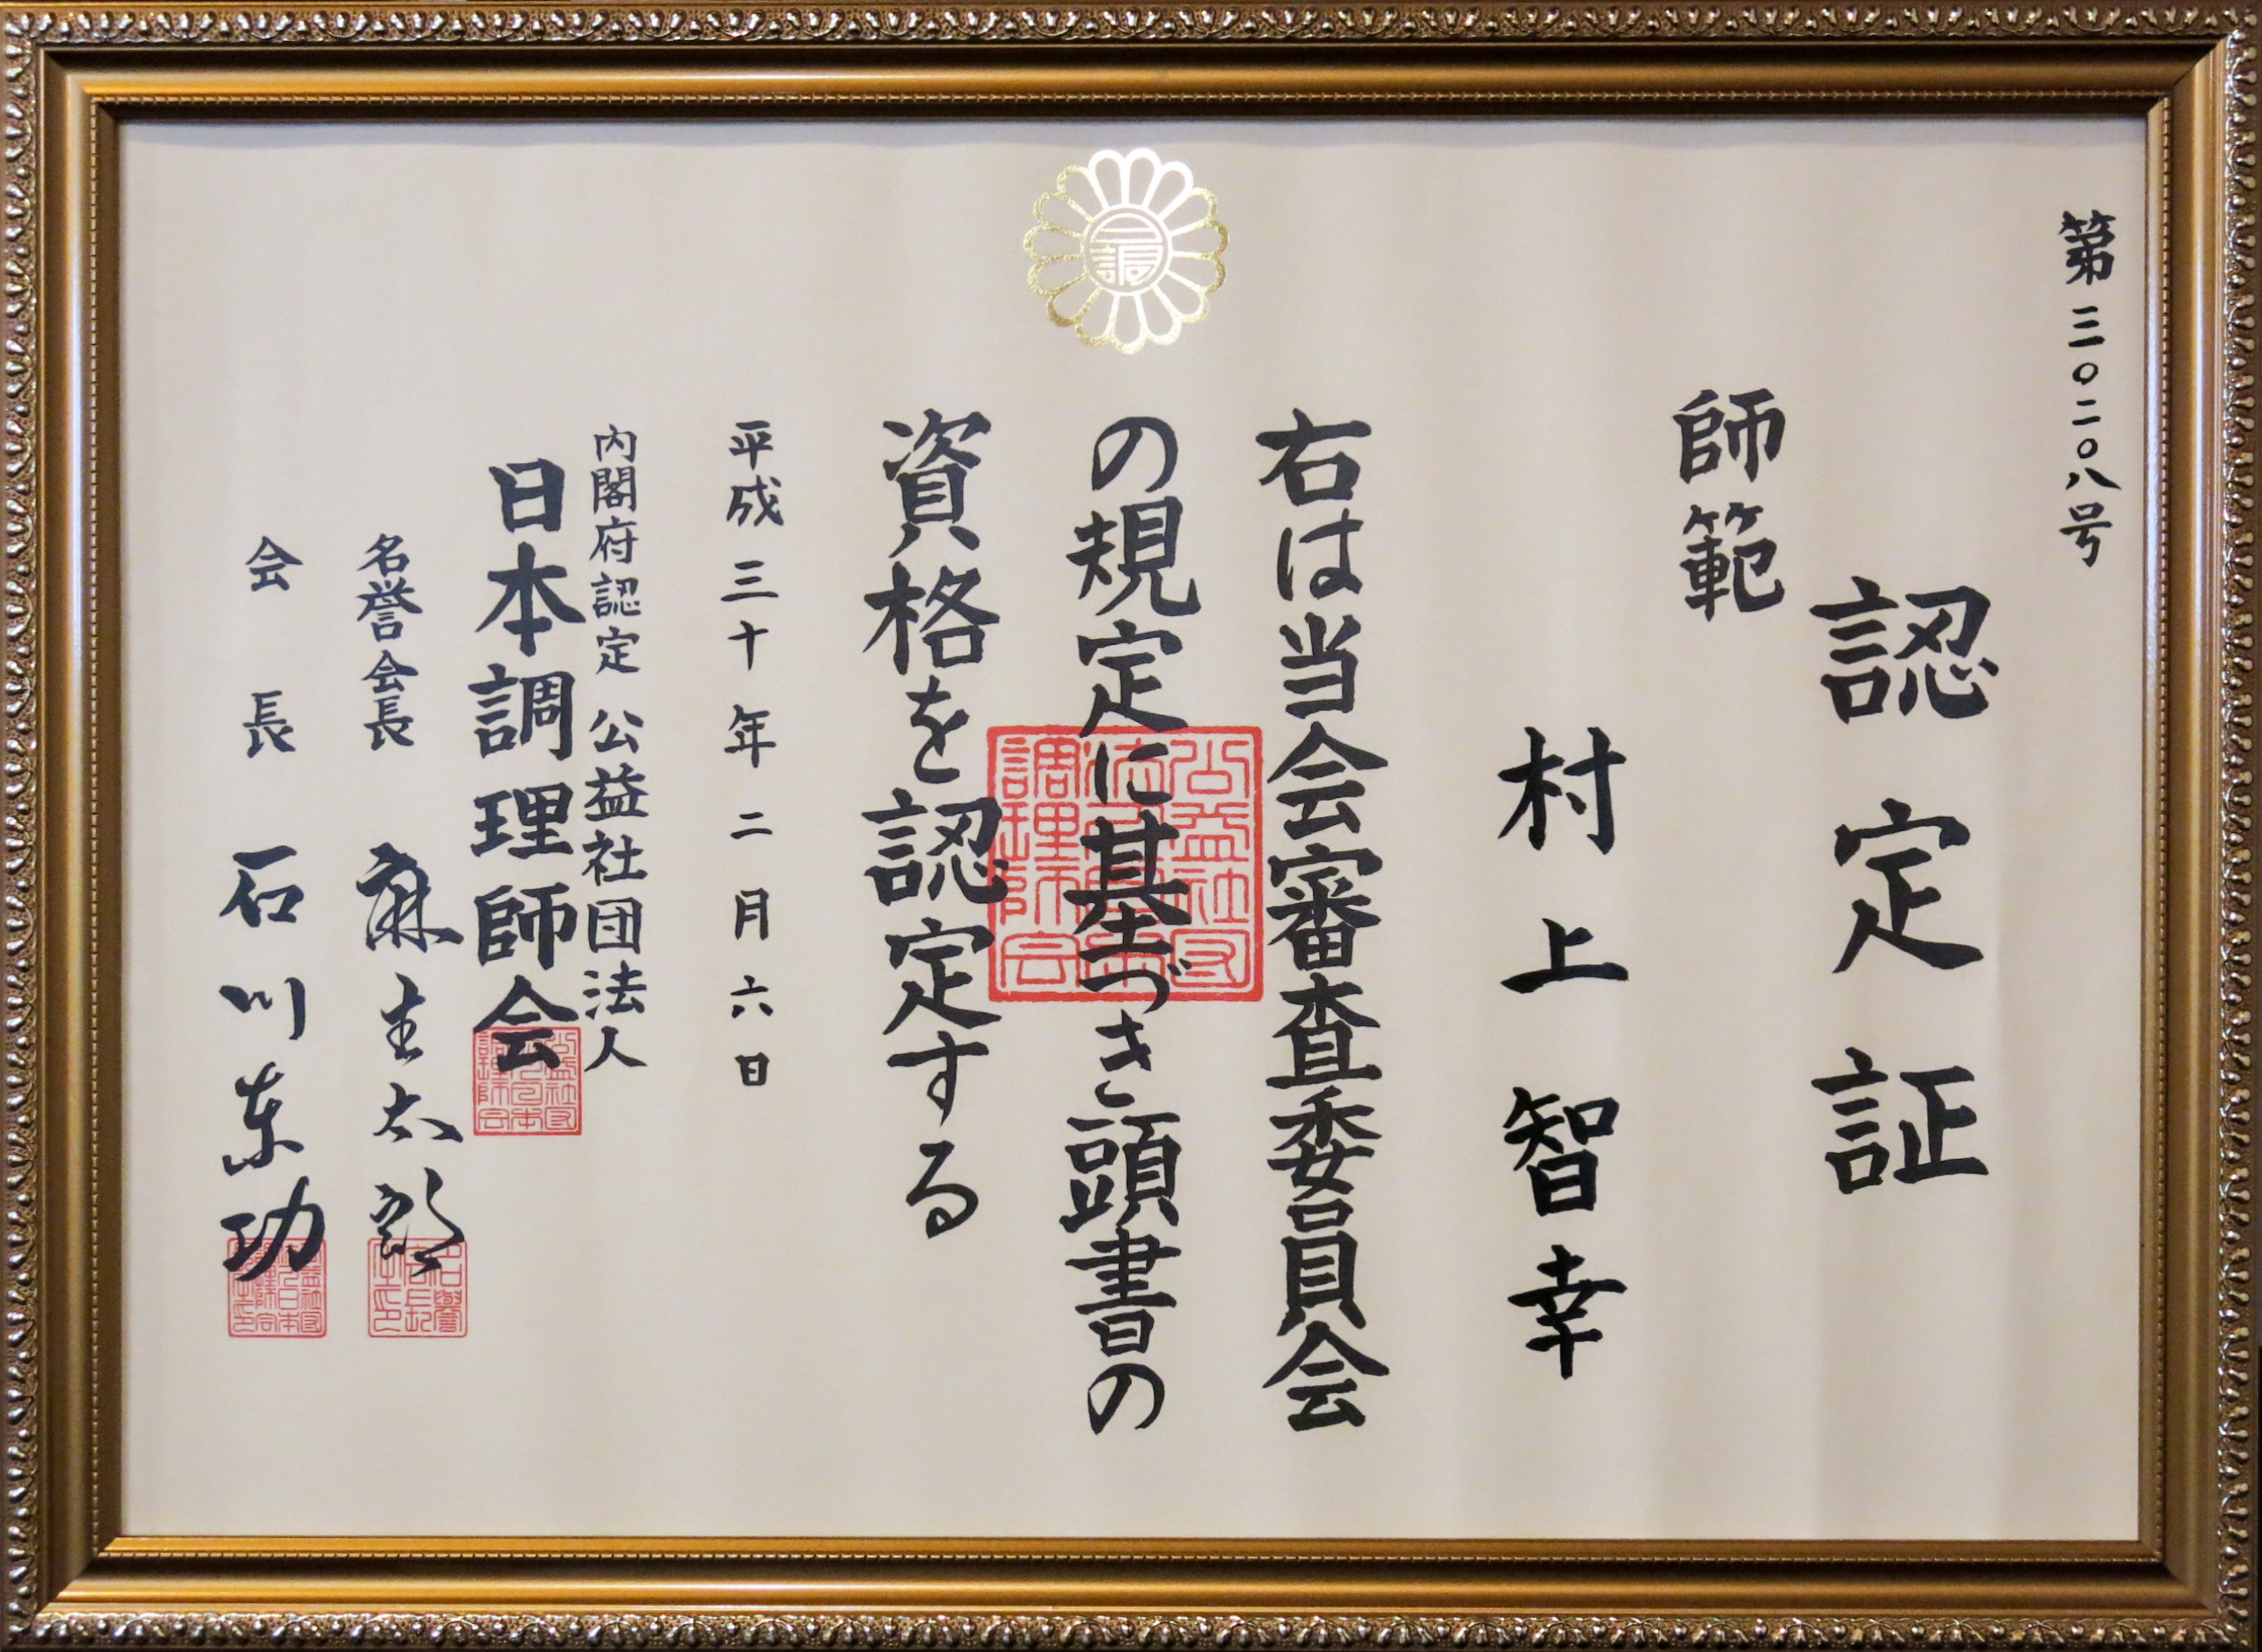 第三〇二〇八号
認定証
師範
村上智幸
右は当会審査委員会
の規定に基づき頭書の
資格を認定する
平成三十年二月六日
内閣府認定 公益社団法人
日本調理師会
名誉会長 麻生太郎
会長 石川东功